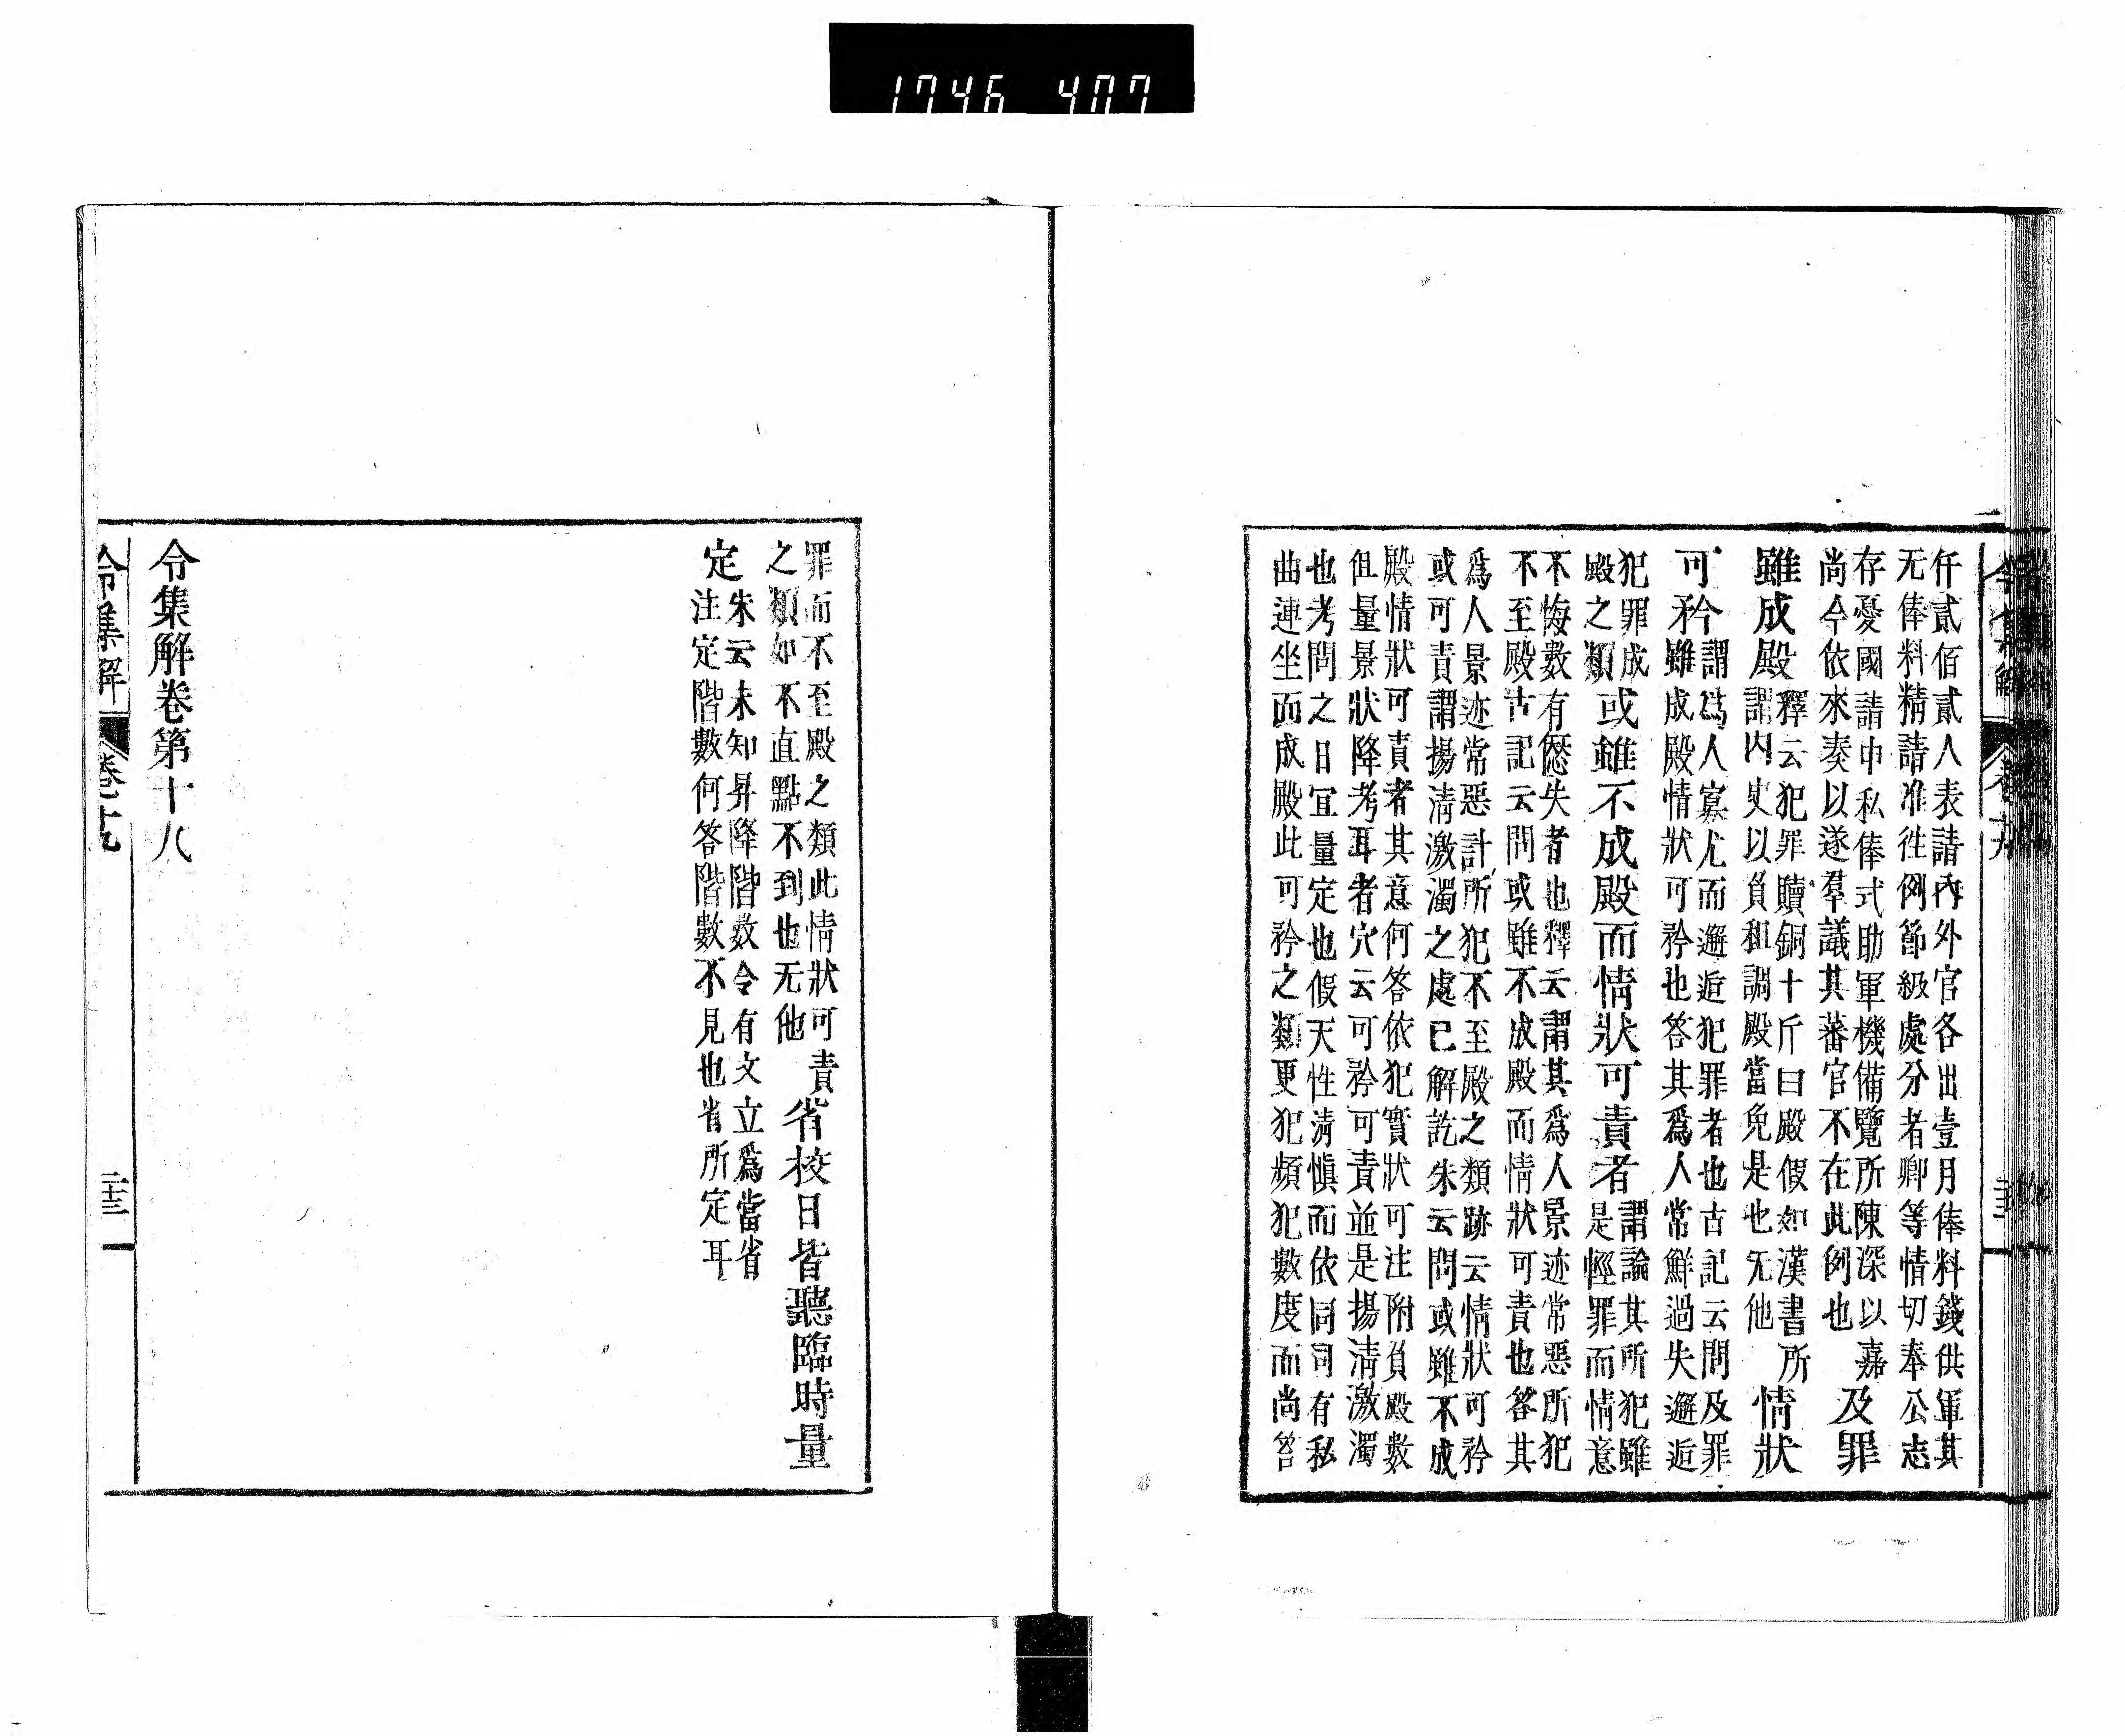 1746 407
仟貳佰貳人表請內外官各出壹月俸料錢供軍其
无俸料精請准徃例節級處分者卿等情切奉公志
存憂國請申私俸式助軍機備覽所陳深以嘉
尚今依來奏以遂羣議其蕃官不在此例也
及罪
雖成殿
釋云犯罪贖銅十斤曰殿假如漢書所
謂內史以負租調殿當免是也无他
情狀
可矜
謂爲人寡尤而邂逅犯罪者也古記云問及罪
雖成殿情狀可矜也答其爲人常鮮過失邂逅
犯罪成
殿之類
或雖不成殿而情狀可責者
謂論其所犯雖
是輕罪而情意
不悔數有愆失者也釋云謂其爲人景迹常惡所犯
不至殿古記云問或雖不成殿而情狀可責也答其
爲人景迹常惡計所犯不至殿之類跡云情狀可矜
或可責謂揚淸激濁之處已解訖朱云問或雖不成
殿情狀可責者其意何答依犯實狀可注附負殿數
但量景狀降考耳者穴云可矜可責並是揚淸激濁
也考問之日宜量定也假天性淸愼而依同司有私
曲連坐而成殿此可矜之類更犯頻犯數度而尚笞
罪而不至殿之類此情狀可責
之類如不直點不到也无他
省校日皆聽臨時量
定
朱云未知昇降階数令有文立爲當省
注定階數何答階數不見也省所定耳
令集解卷第十八
令集解
卷十九
二十三